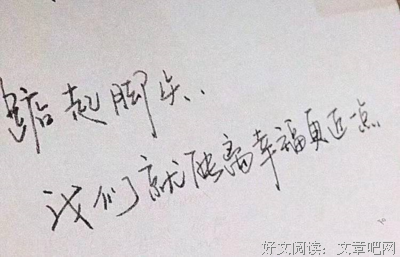 踮起脚尖..
我们就能离幸福更近一点
好文阅读：文章吧网